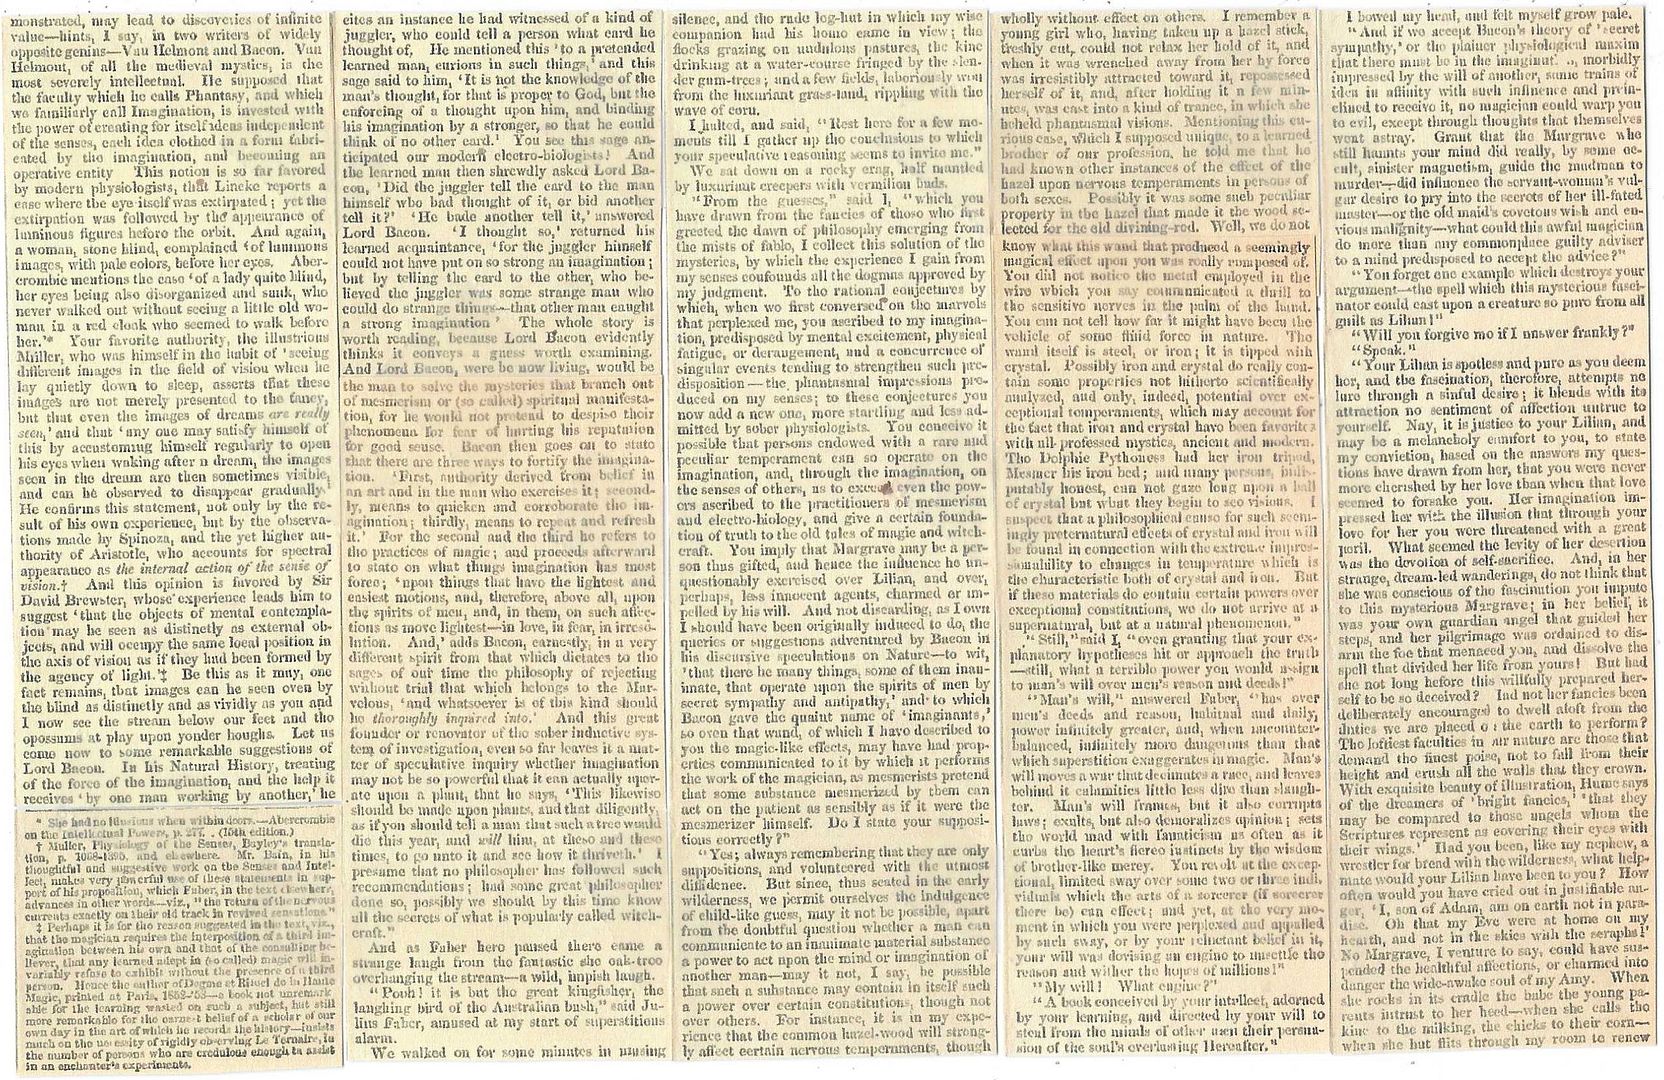 monstrated, may lead to discoveries of infinite
value—hints, I say, in two writers of widely
opposite genius—Van Helmont and Bacon. Van
Helmont, of all the medieval mystics, is the
most severely intellectual. He supposed that
the faculty which he calls Phantasy, and which
we familiarly call Imagination, is invested with
the power of creating for itself ideas independent
of the senses, each idea clothed in a form fabri-
cated by the imagination, and becoming an
operative entity This notion is so far favored
by modern physiologists, that Lincke reports a
case where the eye itself was extirpated; yet the
extirpation was followed by the appearance of
luminous figures before the orbit. And again,
a woman, stone blind, complained ‘of luminous
images, with pale colors, before her eyes. Aber-
crombie mentions the case ‘of a lady quite blind,
her eyes being also disorganized and sunk, who
never walked out without seeing a little old wo-
man in a red cloak who seemed to walk before
her.’* Your favorite authority, the illustrious
Müller, who was himself in the habit of ‘seeing
different images in the field of vision when he
lay quietly down to sleep, asserts that these
images are not merely presented to the fancy,
but that even the images of dreams are really
seen,’ and that ‘any one may satisfy himself of
this by accustoming himself regularly to open
his eyes when waking after a dream, the images
seen in the dream are then sometimes visible,
and can be observed to disappear gradually.’
He confirms this statement, not only by the re-
sult of his own experience, but by the observa-
tions made by Spinoza, and the yet higher au-
thority of Aristotle, who accounts for spectral
appearance as the internal action of the sense of
vision.† And this opinion is favored by Sir
David Brewster, whose experience leads him to
suggest ‘that the objects of mental contempla-
tion may be seen as distinctly as external ob-
jects, and will occupy the same local position in
the axis of vision as if they had been formed by
the agency of light.’‡ Be this as it may, one
fact remains, that images can be seen even by
the blind as distinctly and as vividly as you and
I now see the stream below our feet and the
opossums at play upon yonder boughs. Let us
come now to some remarkable suggestions of
Lord Bacon. In his Natural History, treating
of the force of the imagination, and the help it
receives ‘by one man working by another,’ he
* She had no illusions when within doors.—Abercrombie
on the Intellectual Powers, p. 277. (15th edition.)
† Müller, Physiology of the Senses, Bayley's transla-
tion, p. 1068-1395, and elsewhere. Mr. Bain, in his
thoughtful and suggestive work on the Senses and Intel-
lect, makes very powerful use of these statements in sup-
port of his proposition, which Faber, in the text elsewhere,
advances in other words—viz., “the return of the nervous
currents exactly on their old track in revived sensations.”
‡ Perhaps it is for the reason suggested in the text, viz.,
that the magician requires the interposition of a third im-
agination between his own and that of the consulting be-
liever, that any learned adept in (so called) magic will in-
variably refuse to exhibit without the presence of a third
person. Hence the author of Dogme et Rituel de la Haute
Magic, printed at Paris, 1852-'53—a book not unremark-
able for the learning wasted on such a subject, but still
more remarkable for the earnest belief of a scholar of our
own day in the art of which he records the history—insists
much on the necessity of rigidly observing Le Ternaire, in
the number of persons who are credulous enough to assist
in an enchanter's experiments.
cites an instance he had witnessed of a kind of
juggler, who could tell a person what card he
thought of. He mentioned this ‘to a pretended
learned man, curious in such things,’ and this
sage said to him, ‘It is not the knowledge of the
man's thought, for that is proper to God, but the
enforcing of a thought upon him, and binding
his imagination by a stronger, so that he could
think of no other card.’ You see this sage an-
ticipated our modern electro-biologists! And
the learned man then shrewdly asked Lord Ba-
con, ‘Did the juggler tell the card to the man
himself who had thought of it, or bid another
tell it?’ ‘He bade another tell it,’ answered
Lord Bacon. ‘I thought so,’ returned his
learned acquaintance, ‘for the juggler himself
could not have put on so strong an imagination;
but by telling the card to the other, who be-
lieved the juggler was some strange man who
could do strange things—that other man caught
a strong imagination’ The whole story is
worth reading, because Lord Bacon evidently
thinks it conveys a guess worth examining.
And Lord Bacon, were he now living, would be
the man to solve the mysteries that branch out
of mesmerism or (so called) spiritual manifesta-
tion, for he would not pretend to despise their
phenomena for fear of hurting his reputation
for good sense. Bacon then goes on to state
that there are three ways to fortify the imagina-
tion. ‘First, authority derived from belief in
an art and in the man who exercises it; second-
ly, means to quicken and corroborate the im-
agination; thirdly, means to repeat and refresh
it.’ For the second and the third he refers to
the practices of magic; and proceeds afterward
to state on what things imagination has most
force; ‘upon things that have the lightest and
easiest motions, and, therefore, above all, upon
the spirits of men, and, in them, on such affec-
tions as move lightest—in love, in fear, in irreso-
lution. And,’ adds Bacon, earnestly, in a very
different spirit from that which dictates to the
sages of our time the philosophy of rejecting
without trial that which belongs to the Mar-
velous, ‘and whatsoever is of this kind should
be thoroughly inquired into.’ And this great
founder or renovator of the sober inductive sys-
tem of investigation, even so far leaves it a mat-
ter of speculative inquiry whether imagination
may not be so powerful that it can actually oper-
ate upon a plant, that he says, ‘This likewise
should be made upon plants, and that diligently,
as if you should tell a man that such a tree would
die this year, and will him, at these and these
times, to go unto it and see how it thriveth.’ I
presume that no philosopher has followed such
recommendations; had some great philosopher
done so, possibly we should by this time know
all the secrets of what is popularly called witch-
craft.”
And as Faber here paused there came a
strange laugh from the fantastic she oak-tree
overhanging the stream—a wild, impish laugh.
“Pooh! it is but the great kingfisher, the
laughing bird of the Australian bush,” said Ju-
lius Faber, amused at my start of superstitious
alarm.
We walked on for some minutes in musing
silence, and the rude log-hut in which my wise
companion had his home came in view; the
flocks grazing on undulous pastures, the kine
drinking at a water-course fringed by the slen-
der gum-trees; and a few fields, laboriously won
from the luxuriant grass-land, rippling with the
wave of corn.
I halted, and said, “Rest here for a few mo-
ments till I gather up the conclusions to which
your speculative reasoning seems to invite me.”
We sat down on a rocky crag, half mantled
by luxuriant creepers with vermilion buds.
“From the guesses,” said I, “which you
have drawn from the fancies of those who first
greeted the dawn of philosophy emerging from
the mists of fable, I collect this solution of the
mysteries, by which the experience I gain from
my senses confounds all the dogmas approved by
my judgment. To the rational conjectures by
which, when we first conversed on the marvels
that perplexed me, you ascribed to my imagina-
tion, predisposed by mental excitement, physical
fatigue, or derangement, and a concurrence of
singular events tending to strengthen such pre-
disposition—the phantasmal impressions pro-
duced on my senses; to these conjectures you
now add a new one, more startling and less ad-
mitted by sober physiologists. You conceive it
possible that persons endowed with a rare and
peculiar temperament can so operate on the
imagination, and, through the imagination, on
the senses of others, as to exceed even the pow-
ers ascribed to the practitioners of mesmerism
and electro-biology, and give a certain founda-
tion of truth to the old tales of magic and witch-
craft. You imply that Margrave may be a per-
son thus gifted, and hence the influence he un-
questionably exercised over Lilian, and over,
perhaps, less innocent agents, charmed or im-
pelled by his will. And not discarding, as I own
I should have been originally induced to do, the
queries or suggestions adventured by Bacon in
his discursive speculations on Nature—to wit,
‘that there be many things, some of them inan-
imate, that operate upon the spirits of men by
secret sympathy and antipathy,’ and to which
Bacon gave the quaint name of ‘imaginants,’
so even that wand, of which I have described to
you the magic-like effects, may have had prop-
erties communicated to it by which it performs
the work of the magician, as mesmerists pretend
that some substance mesmerized by them can
act on the patient as sensibly as if it were the
mesmerizer himself. Do I state your supposi-
tions correctly?”
“Yes; always remembering that they are only
suppositions, and volunteered with the utmost
diffidence. But since, thus seated in the early
wilderness, we permit ourselves the indulgence
of child-like guess, may it not be possible, apart
from the doubtful question whether a man can
communicate to an inanimate material substance
a power to act upon the mind or imagination of
another man—may it not, I say, be possible
that such a substance may contain in itself such
a power over certain constitutions, though not
over others. For instance, it is in my expe-
rience that the common hazel-wood will strong-
ly affect certain nervous temperaments, though
wholly without effect on others. I remember a
young girl who, having taken up a hazel stick,
freshly cut, could not relax her hold of it, and
when it was wrenched away from her by force
was irresistibly attracted toward it, repossessed
herself of it, and, after holding it a few min-
utes, was cast into a kind of trance, in which she
beheld phantasmal visions. Mentioning this cu-
rious case, which I supposed unique, to a learned
brother of our profession, he told me that he
had known other instances of the effect of the
hazel upon nervous temperaments in persons of
both sexes. Possibly it was some such peculiar
property in the hazel that made it the wood se-
lected for the old divining-rod. Well, we do not
know what this wand that produced a seemingly
magical effect upon you was really composed of.
You did not notice the metal employed in the
wire which you say communicated a thrill to
the sensitive nerves in the palm of the hand.
You can not tell how far it might have been the
vehicle of some fluid force in nature. The
wand itself is steel, or iron; it is tipped with
crystal. Possibly iron and crystal do really con-
tain some properties not hitherto scientifically
analyzed, and only, indeed, potential over ex-
ceptional temperaments, which may account for
the fact that iron and crystal have been favorites
with all professed mystics, ancient and modern.
The Delphic Pythoness had her iron tripod,
Mesmer his iron bed; and many persons, indis-
putably honest, can not gaze long upon a ball
of crystal but what they begin to see visions. I
suspect that a philosophical cause for such seem-
ingly preternatural effects of crystal and iron will
be found in connection with the extreme impres-
sionability to changes in temperature which is
the characteristic both of crystal and iron. But
if these materials do contain certain powers over
exceptional constitutions, we do not arrive at a
supernatural, but at a natural phenomenon.”
“Still,” said I, “even granting that your ex-
planatory hypotheses hit or approach the truth
—still, what a terrible power you would assign
to man's will over men's reason and deeds!”
“Man's will,” answered Faber, “has over
men's deeds and reason, habitual and daily,
power infinitely greater, and, when uncounter-
balanced, infinitely more dangerous than that
which superstition exaggerates in magic. Man's
will moves a war that decimates a race, and leaves
behind it calamities little less dire than slaugh-
ter. Man's will frames, but it also corrupts
laws; exalts, but also demoralizes opinion; sets
the world mad with fanaticism as often as it
curbs the heart's fierce instincts by the wisdom
of brother-like mercy. You revolt at the excep-
tional, limited sway over some two or three indi-
viduals which the arts of a sorcerer (if sorcerer
there be) can effect; and yet, at the very mo-
ment in which you were perplexed and appalled
by such sway, or by your reluctant belief in it,
your will was devising an engine to unsettle the
reason and wither the hopes of millions!”
“My will! What engine?”
“A book conceived by your intellect, adorned
by your learning, and directed by your will to
steal from the minds of other men their persua-
sion of the soul's everlasting Hereafter.”
I bowed my head, and felt myself grow pale.
“And if we accept Bacon's theory of ‘secret
sympathy,’ or the plainer physiological maxim
that there must be in the imaginat. ., morbidly
impressed by the will of another, some trains of
idea in affinity with such influence and prein-
clined to receive it, no magician could warp you
to evil, except through thoughts that themselves
went astray. Grant that the Margrave who
still haunts your mind did really, by some oc-
cult, sinister magnetism, guide the madman to
murder—did influence the servant-woman's vul-
gar desire to pry into the secrets of her ill-fated
master—or the old maid's covetous wish and en-
vious malignity—what could this awful magician
do more than any commonplace guilty adviser
to a mind predisposed to accept the advice?”
“You forget one example which destroys your
argument—the spell which this mysterious fasci-
nator could cast upon a creature so pure from all
guilt as Lilian!”
“Will you forgive me if I answer frankly?”
“Speak.”
“Your Lilian is spotless and pure as you deem
her, and the fascination, therefore, attempts no
lure through a sinful desire; it blends with its
attraction no sentiment of affection untrue to
yourself. Nay, it is justice to your Lilian, and
may be a melancholy comfort to you, to state
my conviction, based on the answers my ques-
tions have drawn from her, that you were never
more cherished by her love than when that love
seemed to forsake you. Her imagination im-
pressed her with the illusion that through your
love for her you were threatened with a great
peril. What seemed the levity of her desertion
was the devotion of self-sacrifice. And, in her
strange, dream-led wanderings, do not think that
she was conscious of the fascination you impute
to this mysterious Margrave; in her belief, it
was your own guardian angel that guided her
steps, and her pilgrimage was ordained to dis-
arm the foe that menaced you, and dissolve the
spell that divided her life from yours! But had
she not long before this willfully prepared her-
self to be so deceived? Had not her fancies been
deliberately encouraged to dwell aloft from the
duties we are placed on the earth to perform?
The loftiest faculties in our nature are those that
demand the finest poise, not to fall from their
height and crush all the walls that they crown.
With exquisite beauty of illustration, Hume says
of the dreamers of ‘bright fancies,’ ‘that they
may be compared to those angels whom the
Scriptures represent as covering their eyes with
their wings.’ Had you been, like my nephew, a
wrestler for bread with the wilderness, what help-
mate would your Lilian have been to you? How
often would you have cried out in justifiable an-
ger, ‘I, son of Adam, am on earth not in para-
dise. Oh that my Eve were at home on my
hearth, and not in the skies with the seraphs!’
No Margrave, I venture to say, could have sus-
pended the healthful affections, or charmed into
danger the wide-awake soul of my Amy. When
she rocks in its cradle the babe the young pa-
rents intrust to her heed—when she calls the
kine to the milking, the chicks to their corn—
when she but flits through my room to renew